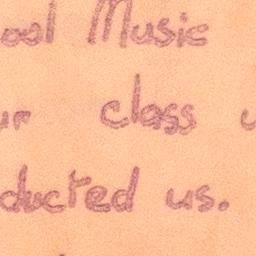 ool Music
ur class u
ducted us.